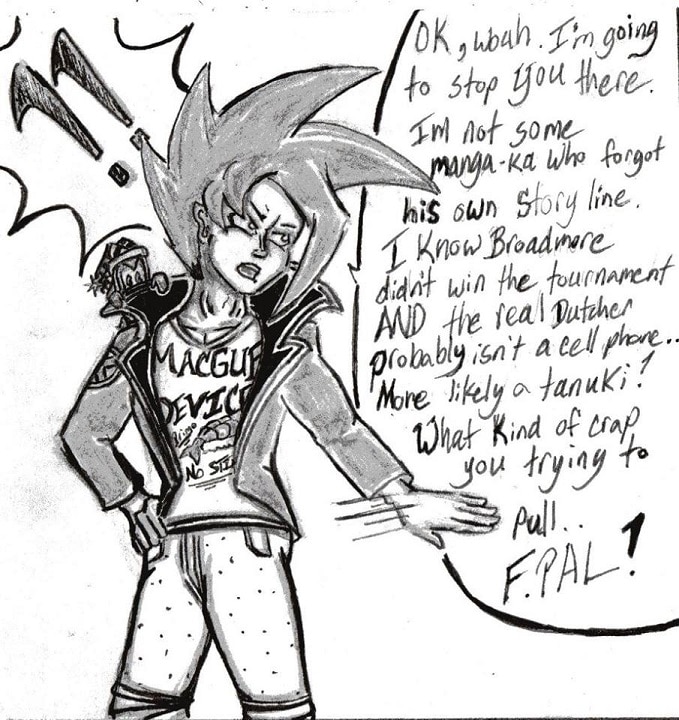 !!
OK, woah. I'm going
to stop you there.
Im not some
manga-ka who forgot
his own story line.
I Know Broadmore
didn't win the tournament
AND the real Dutcher
probably isn't a cell phone..
More likely a tanuki!
What kind of crap
you trying to
pull..
F.PAL!
MACGUF
DEVICE
NO STI